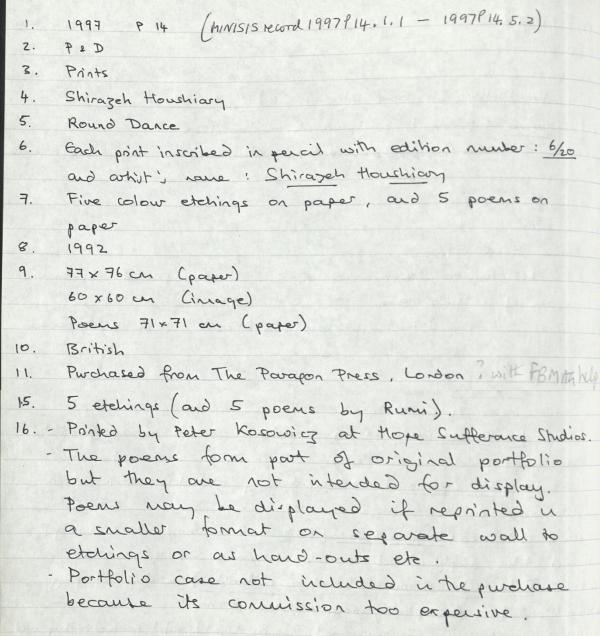 1. 1997 P 14 (MINISIS record 1997P14.1.1 - 1997P14.5.2)
2. P & D
3. Prints
4. Shirazeh Houshiary
5. Round Dance
6. Each print inscribed in pencil with edition number : 6/20
and artist's name : Shirazeh Houshiary
7. Five colour etchings on paper, and 5 poems on
paper
8. 1992
9. 77 x 76 cm (paper)
60 x 60 cm (image)
Poems 71 x 71 cm (paper)
10. British
11. Purchased from The Paragon Press, London ? with FBMAG help
15. 5 etchings (and 5 poems by Rumi).
16. - Printed by Peter Kosowicz at Hope Sufferance Studios.
- The poems form part of original portfolio
but they are not intended for display.
Poems may be displayed if reprinted in
a smaller format on separate wall to
etchings or as hand-outs etc.
- Portfolio case not included in the purchase
because its commission too expensive.